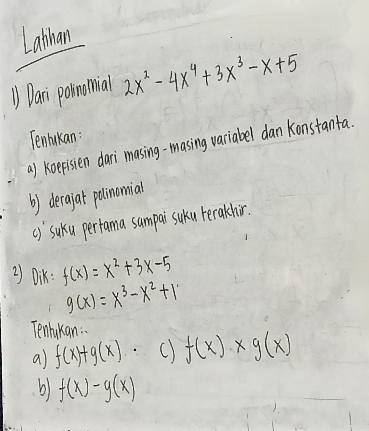 Latihan
1) Dari polinomial 2x² - 4x⁴ + 3x³ - x + 5
Tentukan:
a) Koefisien dari masing-masing variabel dan konstanta.
b) derajat polinomial
c) suku pertama sampai suku terakhir.
2) Dik: f(x) = x² + 3x - 5
g(x) = x³ - x² + 1
Tentukan:
a) f(x)+g(x) . c) f(x) x g(x)
b) f(x) - g(x)